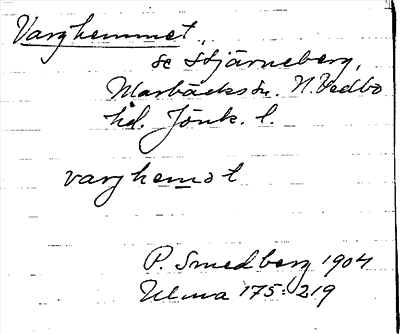 Varghemmet,
se Stjärneberg,
Marbäckssn. N. Vedbo
hd. Jönk. l.
varghemət
P. Smedberg 1904
Ulma 175:219